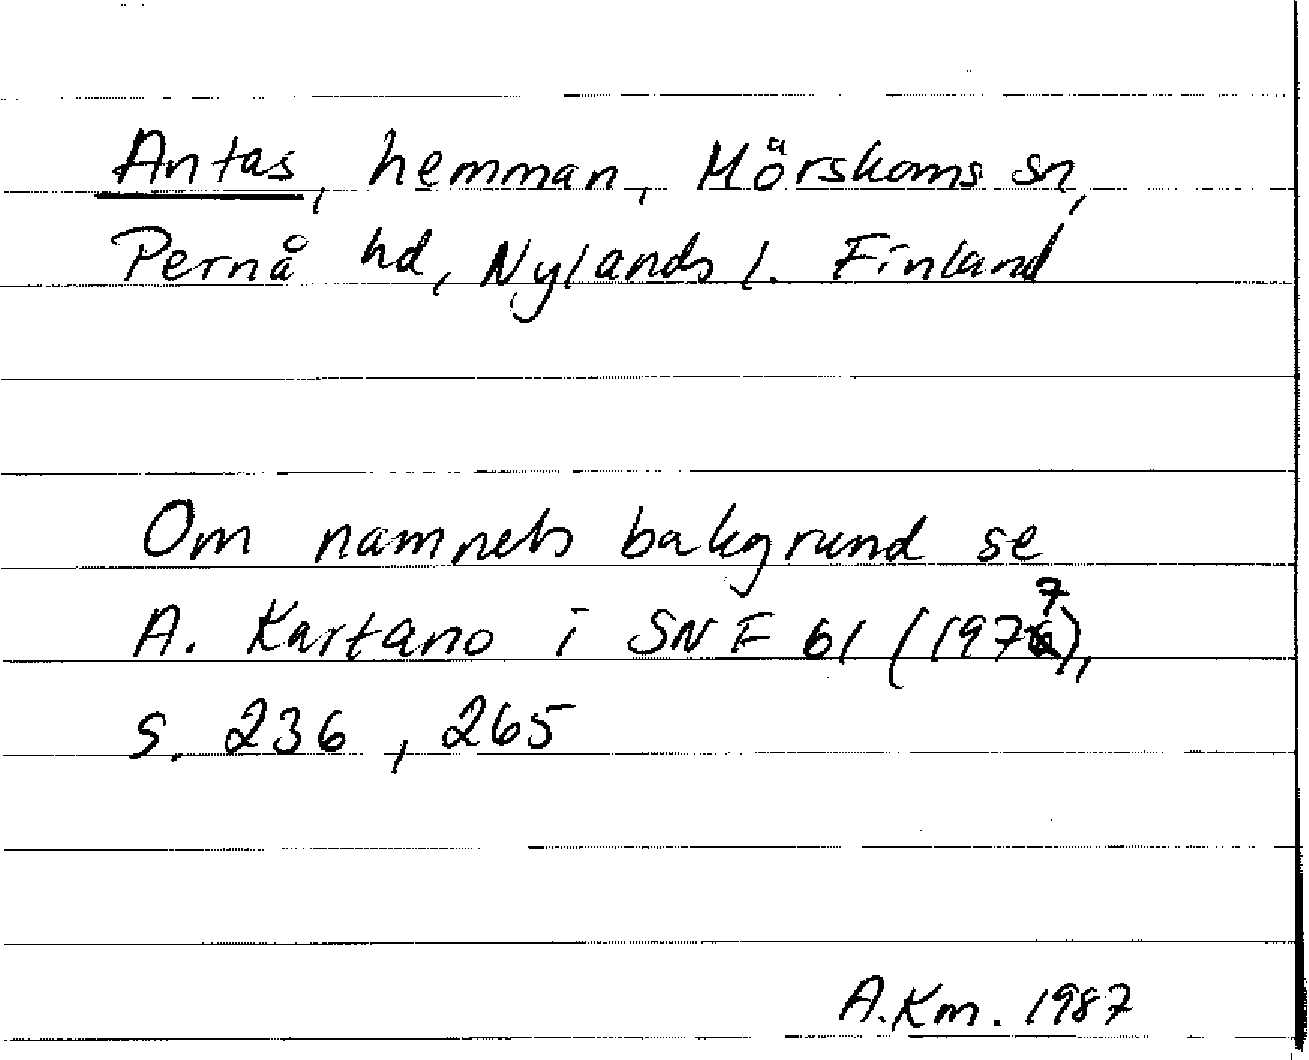 Antas, hemman, Mörskoms sn,
Pernå hd, Nylands l. Finland
Om namnets bakgrund se
A. Kartano i SNF 61 (1977),
s. 236, 265
A.Km. 1987